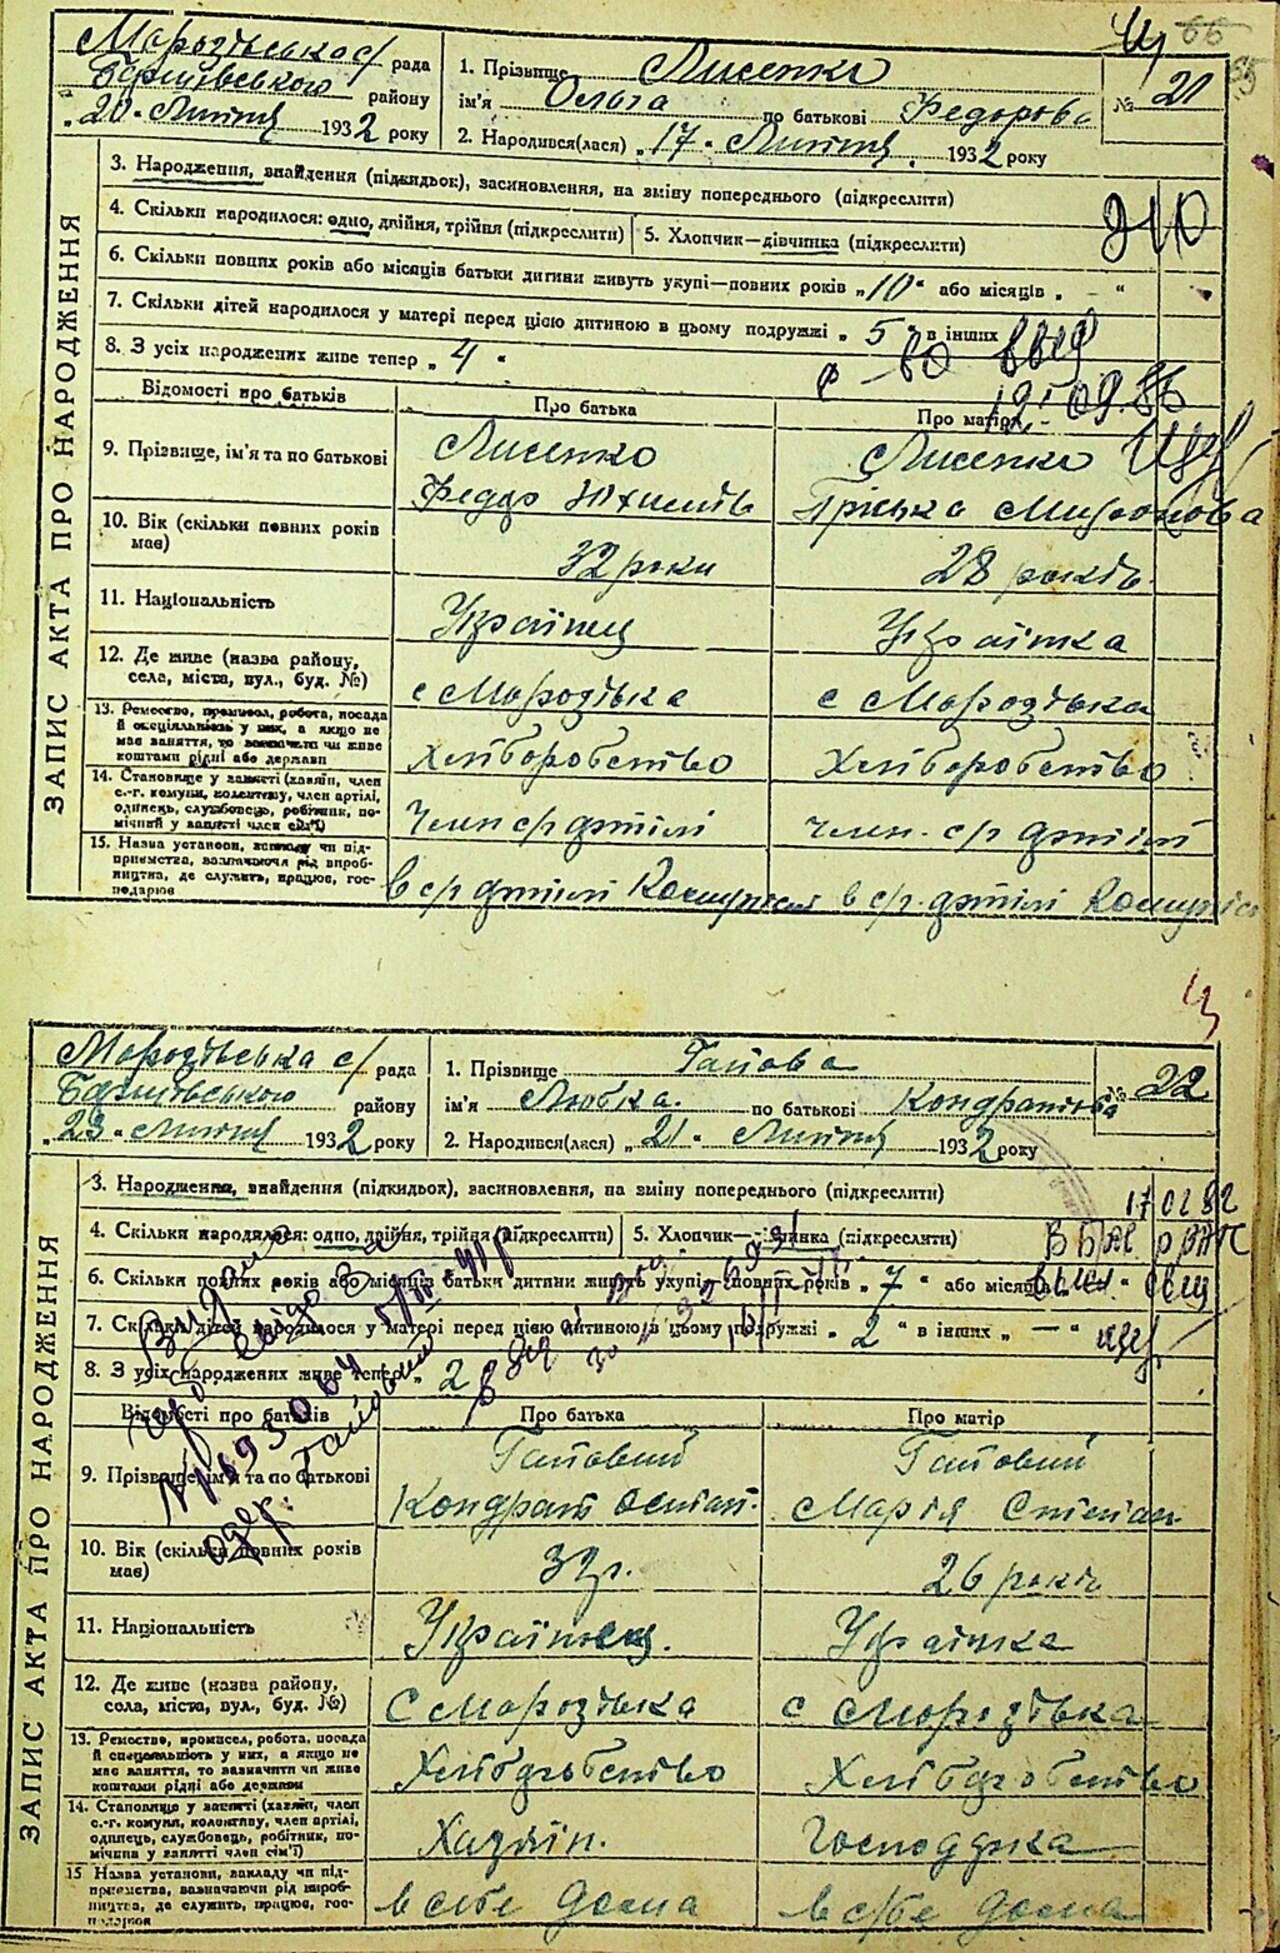 66
Морозівська с/ рада
Баришівського району
"20" Липня 1932 року
1. Прізвище Лисенко
ім'я Ольга по батькові Федорова
2. Народився(лася) "17" Липня 1932 року
№ 21
ЗАПИС АКТА ПРО НАРОДЖЕННЯ
3. Народження, знайдення (підкидьок), засиновлення, на зміну попереднього (підкреслити)
4. Скільки народилося: одно, двійня, трійня (підкреслити)
5. Хлопчик—дівчинка (підкреслити)
6. Скільки повних років або місяців батьки дитини живуть укупі—повних років „10" або місяців „ - "
7. Скільки дітей народилося у матері перед цією дитиною в цьому подружжі „ 5 " в інших
8. З усіх народжених живе тепер „ 4 "
12.09.86
Відомості про батьків
Про батька
Про матір
9. Прізвище, ім'я та по батькові
Лисенко
Лисенко
Пріська Миронова
10. Вік (скільки повних років має)
32 роки
28 років
11. Національність
Українец
Українка
12. Де живе (назва району, села, міста, вул., буд. №)
с Морозівка
с Морозівка
13. Ремество, промисел, робота, посада й спеціяльність у них, а якщо не має заняття, то зазначити чи живе коштами рідні або держави
Хліборобство
Хліборобство
14. Становище у занятті (хазяїн, член с.-г. комуни, колективу, член артілі, одинець, службовець, робітник, помічний у занятті член сім'ї)
Член с/г артілі
член с/г артілі
15. Назва установи, закладу чи підприємства, зазначаючи рід виробництва, де служить, працює, господарює
в с/г артілі
в с/г. артілі
Морозівська с/ рада
Баришівського району
"23" Липня 1932 року
1. Прізвище Гапова
ім'я Любка. по батькові Кондратова
2. Народився(лася) „21" Липня 1932 року
№ 22
ЗАПИС АКТА ПРО НАРОДЖЕННЯ
3. Народження, знайдення (підкидьок), засиновлення, на зміну попереднього (підкреслити)
17 02 82
4. Скільки народилося: одно, двійня, трійня (підкреслити)
5. Хлопчик—дівчинка (підкреслити)
6. Скільки повних років або місяців батьки дитини живуть укупі—повних років „ 7 " або місяців
7. Скільки дітей народилося у матері перед цією дитиною в цьому подружжі „ 2 " в інших „ — "
8. З усіх народжених живе тепер „ 2
Видано
Відомості про батьків
Про батька
Про матір
9. Прізвище, ім'я та по батькові
Гаповий
Гаповий
Кондрат Остап.
Марія Степан
10. Вік (скільки повних років має)
32 г.
26 років
11. Національність
Українец.
Українка
12. Де живе (назва району, села, міста, вул., буд. №)
С Морозівка
с Морозівка
13. Ремество, промисел, робота, посада й спеціяльність у них, а якщо не має заняття, то зазначити чи живе коштами рідні або держави
Хліборобство
Хліборобство
14. Становище у занятті (хазяїн, член с.-г. комуни, колективу, член артілі, одинець, службовець, робітник, помічний у занятті член сім'ї)
Хазяїн.
Господарка
15 Назва установи, закладу чи підприємства, зазначаючи рід виробництва, де служить, працює, господарює
в себе дома
в себе дома